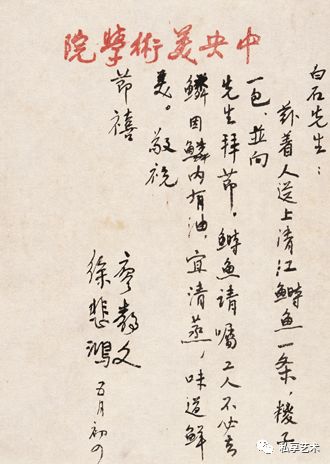 中央美術學院
白石先生：
兹着人送上清江鰣魚一条，糉子
一包，並向
先生拜节。鰣魚请嘱工人不必去
鳞因鳞内有油，宜清蒸，味道鲜
美。敬祝
节禧
廖静文
徐悲鸿 五月初四
私享艺术